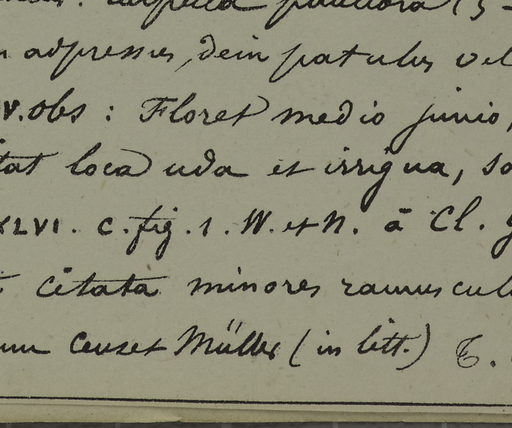 pauciflora (5-
adpressus, dein patulus vel
V. Obs: Floret medio junio,
tat loca uda et irrigua, so
XLVI. c. fig. 1. W. et N. ā Cl. J
citata minores ramuscul
censet Müller (in litt.) T.